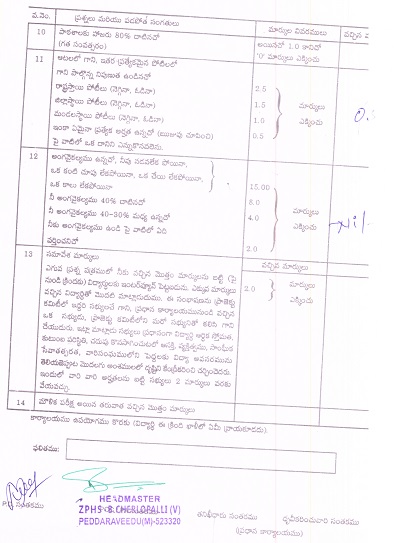 వ.నెం. ప్రశ్నలు మరియు పరిశోధన సంగతులు మార్కుల వివరములు వచ్చిన
10 పాఠశాలకు హాజరు 80% దాటినచో అయినచో 1.0 కానిచో
(గత సంవత్సరం) '0' మార్కులు ఎక్కించు
11 ఆటలలో గాని, ఇతర ప్రత్యేకమైన పోటీలలో
గాని పాల్గొన్న నిపుణత ఉండినచో
రాష్ట్రస్థాయి పోటీలు (నెగ్గినా, ఓడినా) 2.5
జిల్లాస్థాయి పోటీలు (నెగ్గినా, ఓడినా) 1.5 మార్కులు
మండలస్థాయి పోటీలు (నెగ్గినా, ఓడినా) 1.0 ఎక్కించు
ఇంకా ఏమైనా ప్రత్యేక అర్హత ఉన్నచో (ఋజువు చూపించి) 0.5
పై వాటిలో ఒక దానిని ఎన్నుకొనవలెను.
12 అంగవైకల్యము ఉన్నచో, నీవు నడవలేక పోయినా,
ఒక కంటి చూపు లేకపోయినా, ఒక చేయి లేకపోయినా,
ఒక కాలు లేకపోయినా 15.00
నీ అంగవైకల్యము 40% దాటినచో 8.0 మార్కులు
నీ అంగవైకల్యము 40-30% మధ్య ఉన్నచో 4.0 ఎక్కించు
నీకు అంగవైకల్యము ఉండి పై వాటిలో ఏది
వర్తించనిచో 2.0
Nil
13 సమావేశ మార్కులు వచ్చిన మార్కులు
ఎగువ ప్రశ్న పత్రములో నీకు వచ్చిన మొత్తం మార్కులను బట్టి (పై
నుండి క్రిందకు) విద్యార్థులకు ఇంటర్వ్యూకే పెట్టబడును. ఎక్కువ మార్కులు 2.0 మార్కులు
వచ్చిన విద్యార్థితో మొదట మాట్లాడుదుము. ఈ సంభాషణను ప్రాజెక్టు ఎక్కించు
కమిటీలో ఇద్దరి సభ్యులచే గాని, ప్రధాన కార్యాలయమునుండి వచ్చిన
ఒక సభ్యుడు, ప్రాజెక్టు కమిటీలోని మరో సభ్యునితో కలిసి గాని
చేయుదురు. ఇట్లా మాట్లాడు సభ్యులు (ప్రధానంగా విద్యార్థి ఆర్థిక స్తోమత,
కుటుంబ పరిస్థితి, చదువు కొనసాగించుటలో ఆసక్తి, వ్యక్తిత్వము, సాంఘిక
సేవాతత్పరత, వారిసంఘములోని పెద్దలకు విద్యా అవసరమును
తెలియజెప్పుట మొదలగు అంశములలో దృష్టిని కేంద్రీకరించి చర్చించెదరు.
ఇందులో వారి వారి అర్హతలను బట్టి సభ్యులు 2 మార్కులు వరకు
వేయవచ్చు.
14 మౌఖిక పరీక్ష అయిన తరువాత వచ్చిన మొత్తం మార్కులు
కార్యాలయము ఉపయోగము కొరకు (విద్యార్థి ఈ క్రింది ఖాళీలో ఏమీ వ్రాయకూడదు).
ఫలితము:
సంతకము
HEADMASTER
ZPHS B.CHERLOPALLI (V)
PEDDARAVEEDU(M)-523320
తనిఖీదారు సంతకము ధృవీకరించువారి సంతకము
(ప్రధాన కార్యాలయము)